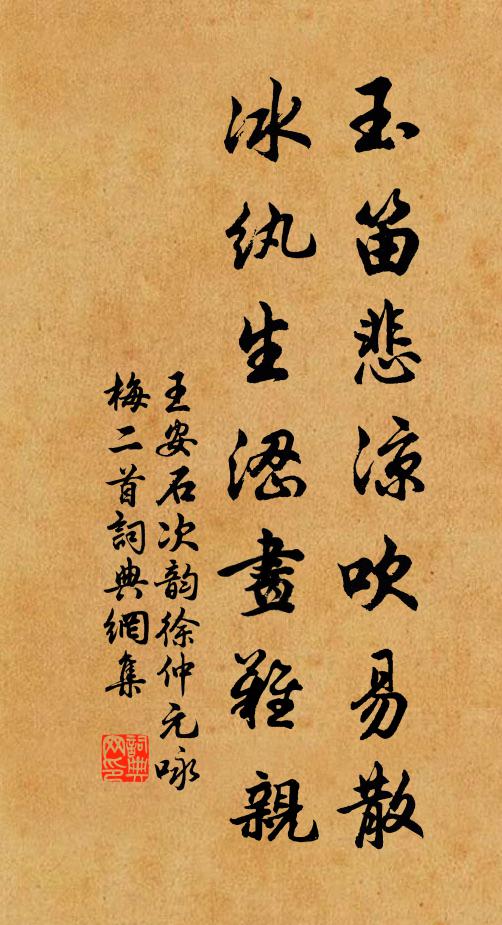 玉笛悲涼吹易散
冰紈生澀畫難親
王安石次韵徐仲元咏
梅二首詞典網集
詞典
网印